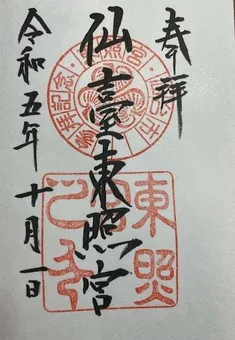 奉拝
仙臺東照宮
令和五年十月一日
東照